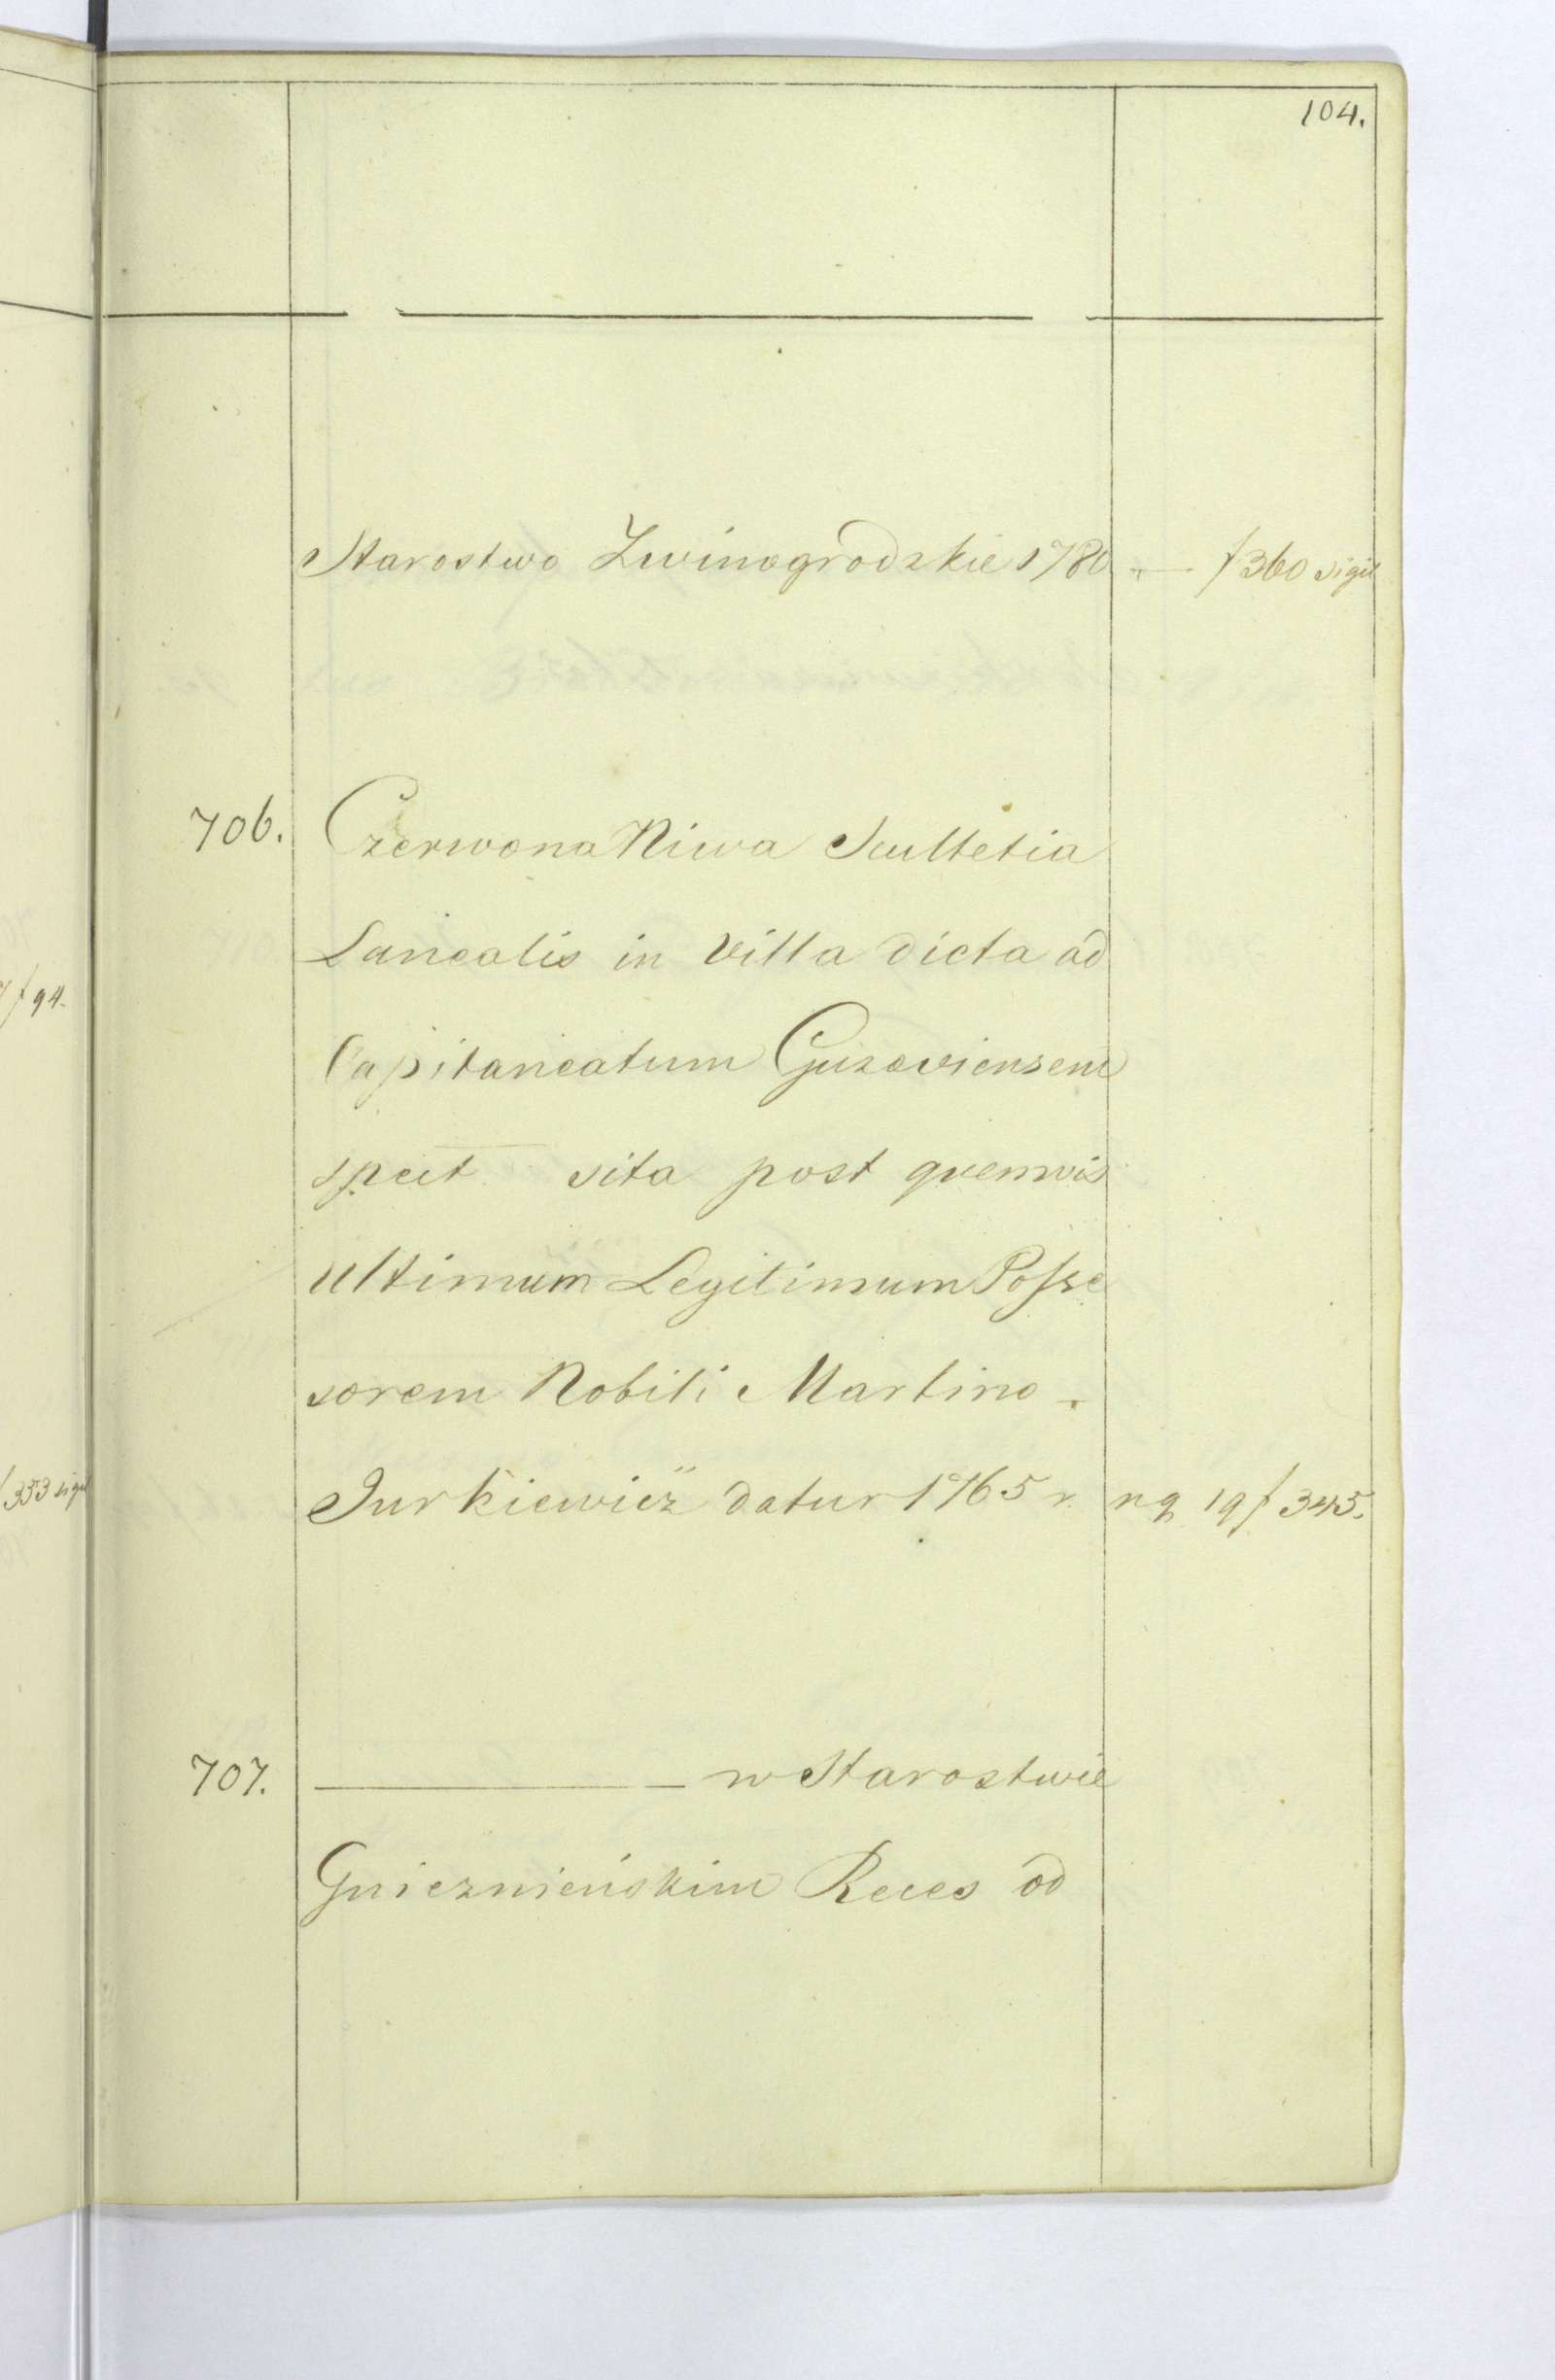 104.
Starostwo Zwinogrodzkie 1780 — f 360 sigil
706. Czerwona Niwa Scultetia
Lanealis in Villa dicta ad
Capitaneatum Guzoviensem
spect sita post quemvis
ultimum Legitimum Posse
sorem Nobili Martino
Jurkiewicz datur 1765 r. ng 19 f 345.
707. — w Starostwie
Gnieznieńskim Reces od
f 94.
f 353 sigil